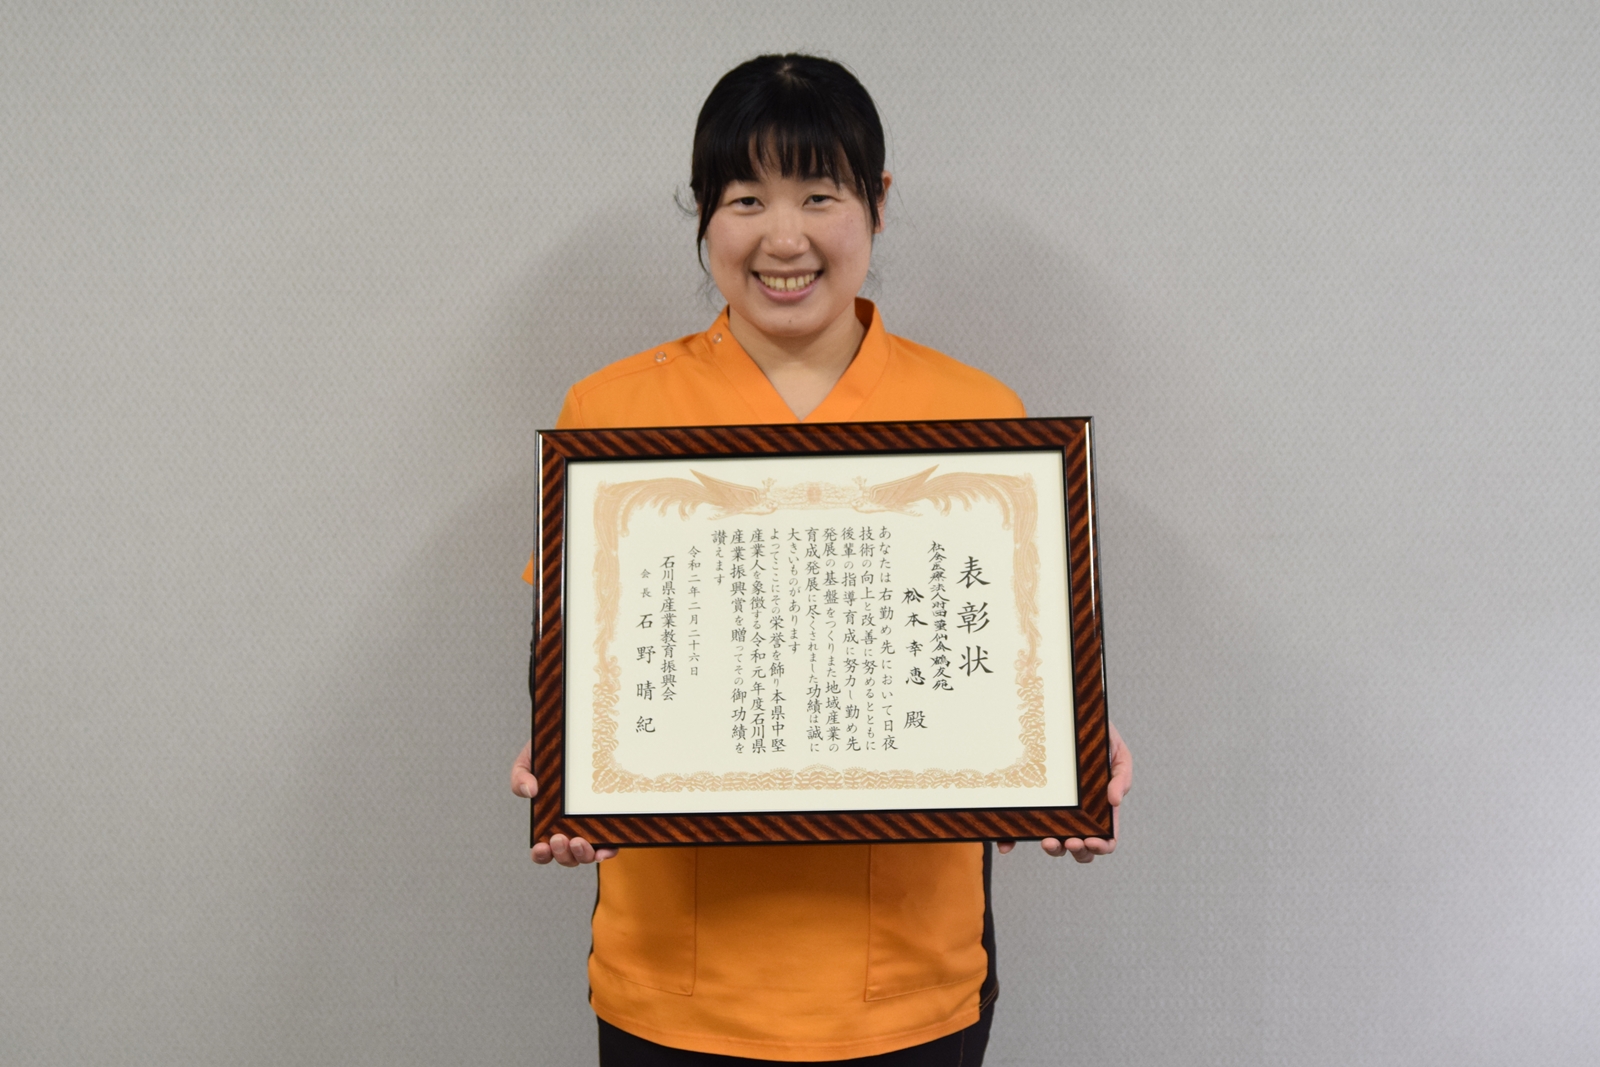 表彰状
社会医療法人財団董仙会鶴友苑
松本幸惠 殿
あなたは右勤め先において日夜
技術の向上と改善に努めるとともに
後輩の指導育成に努力し勤め先
発展の基盤をつくりまた地域産業の
育成発展に尽くされました功績は誠に
大きいものがあります
よってここにその栄誉を飾り本県中堅
産業人を象徴する令和元年度石川県
産業振興賞を贈ってその御功績を
讃えます
令和二年二月二十六日
石川県産業教育振興会
会長 石野晴紀